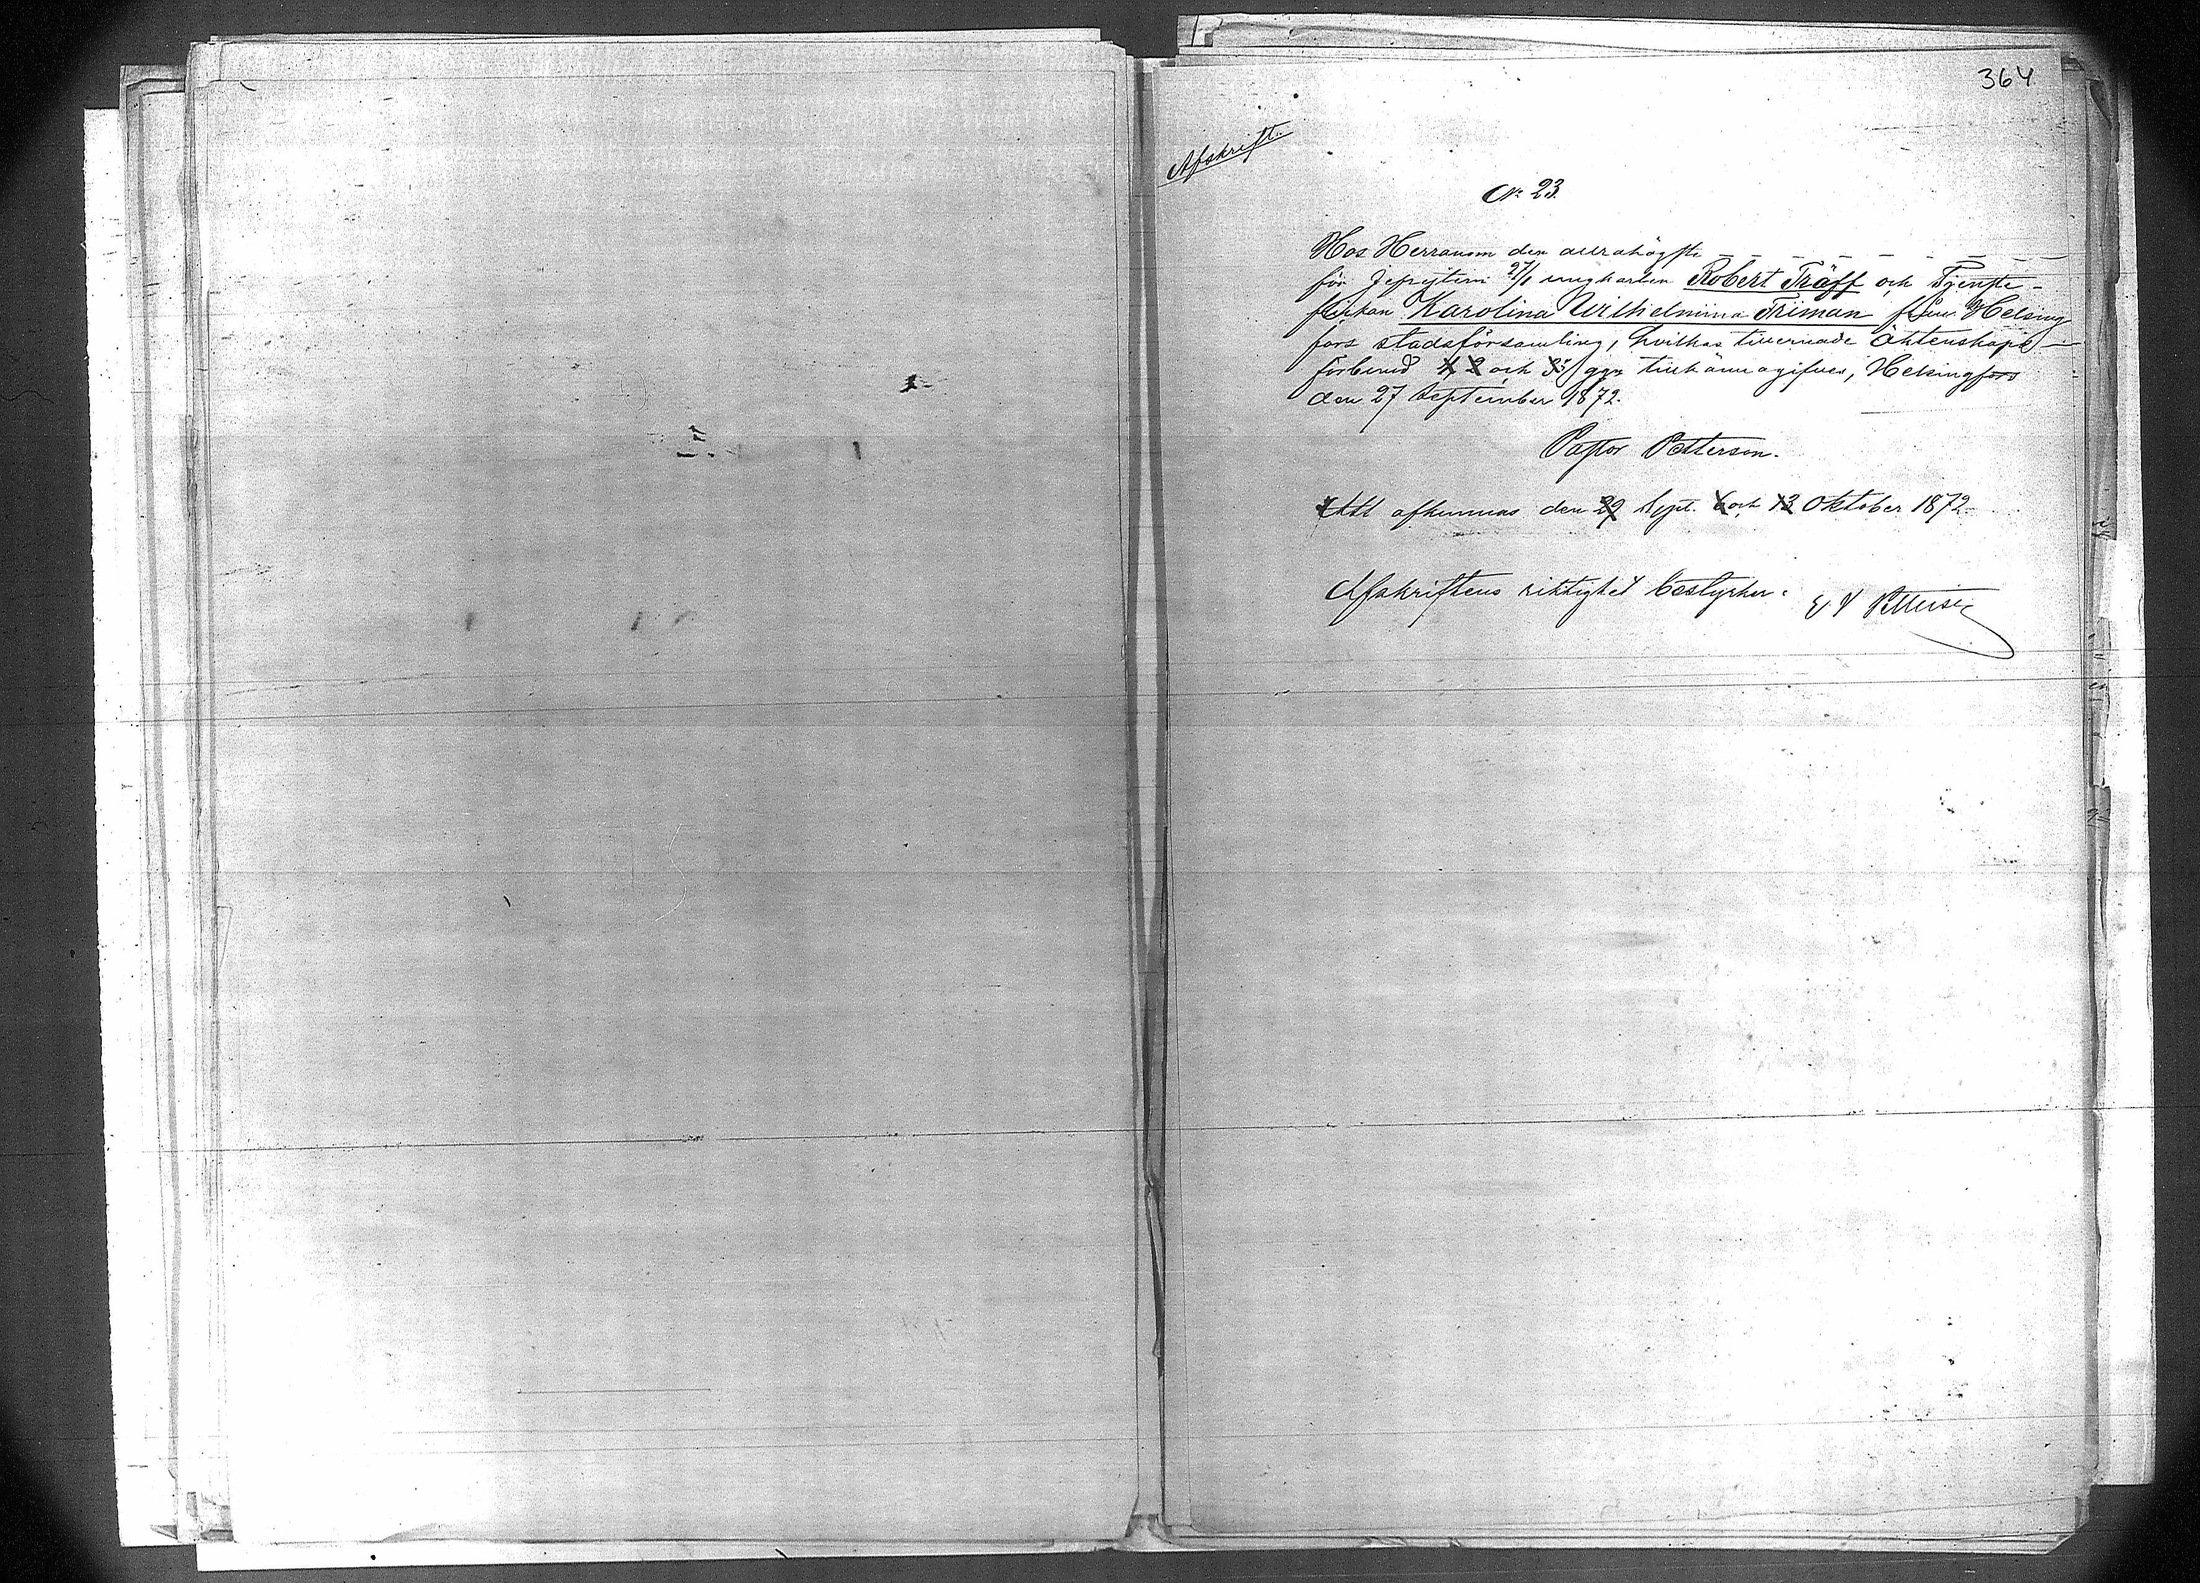 364
Afskrift.
No 23
Hos Herranom den allrahögste
för 27/1 ungkarlen Robert Träff och Tjenste-
flickan Karolina Wilhelmina Friman från Helsing
fors stadsförsamling, hvilkas tillernade Äktenskaps-
förbund 1, 2 och 3 ggn tillkännagifves, Helsingfors
den 27 September 1872.
Pastor Petterson.
Att afkunnas den 29 Sept. 6 och 13 Oktober 1872
Afskriftens riktighet bestyrker: